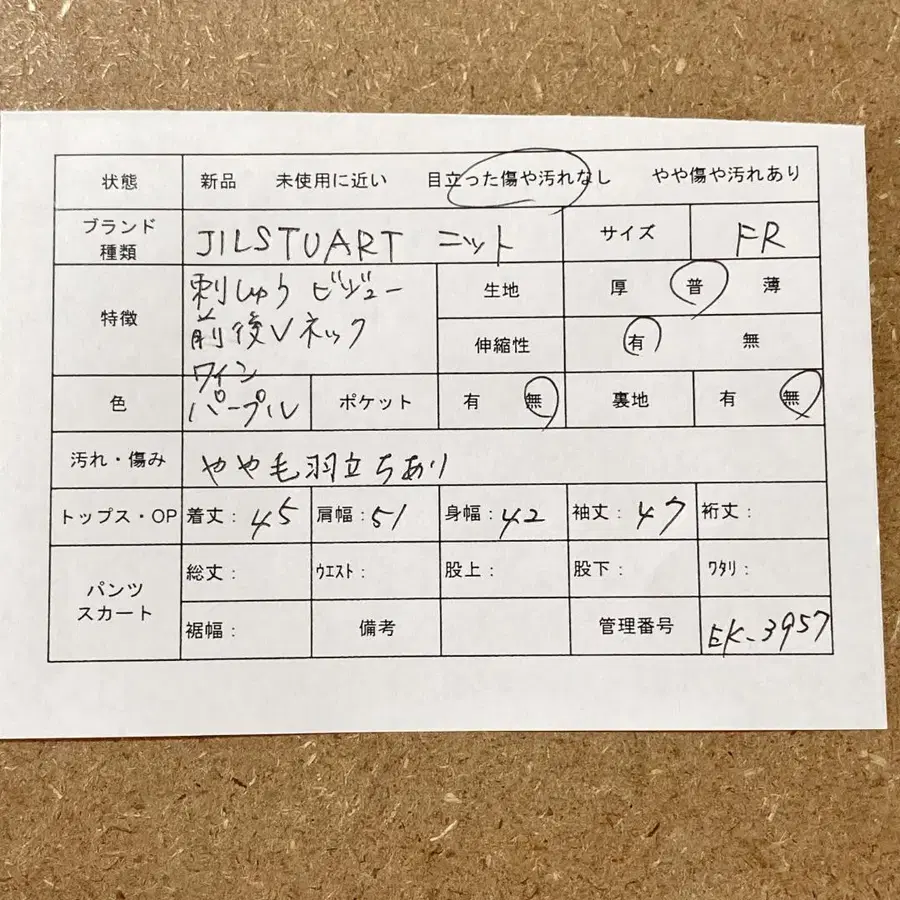 状態 新品 未使用に近い 目立った傷や汚れなし やや傷や汚れあり
ブランド
種類 JILSTUART ニット サイズ FR
特徴 刺しゅう ビジュー
前後Vネック
生地 厚 普 薄
伸縮性 有 無
色 ワイン
パープル ポケット 有 無 裏地 有 無
汚れ・傷み やや毛羽立ちあり
トップス・OP 着丈: 45 肩幅: 51 身幅: 42 袖丈: 47 裄丈:
パンツ
スカート 総丈: ウエスト: 股上: 股下: ワタリ:
裾幅: 備考 管理番号 EK-3957